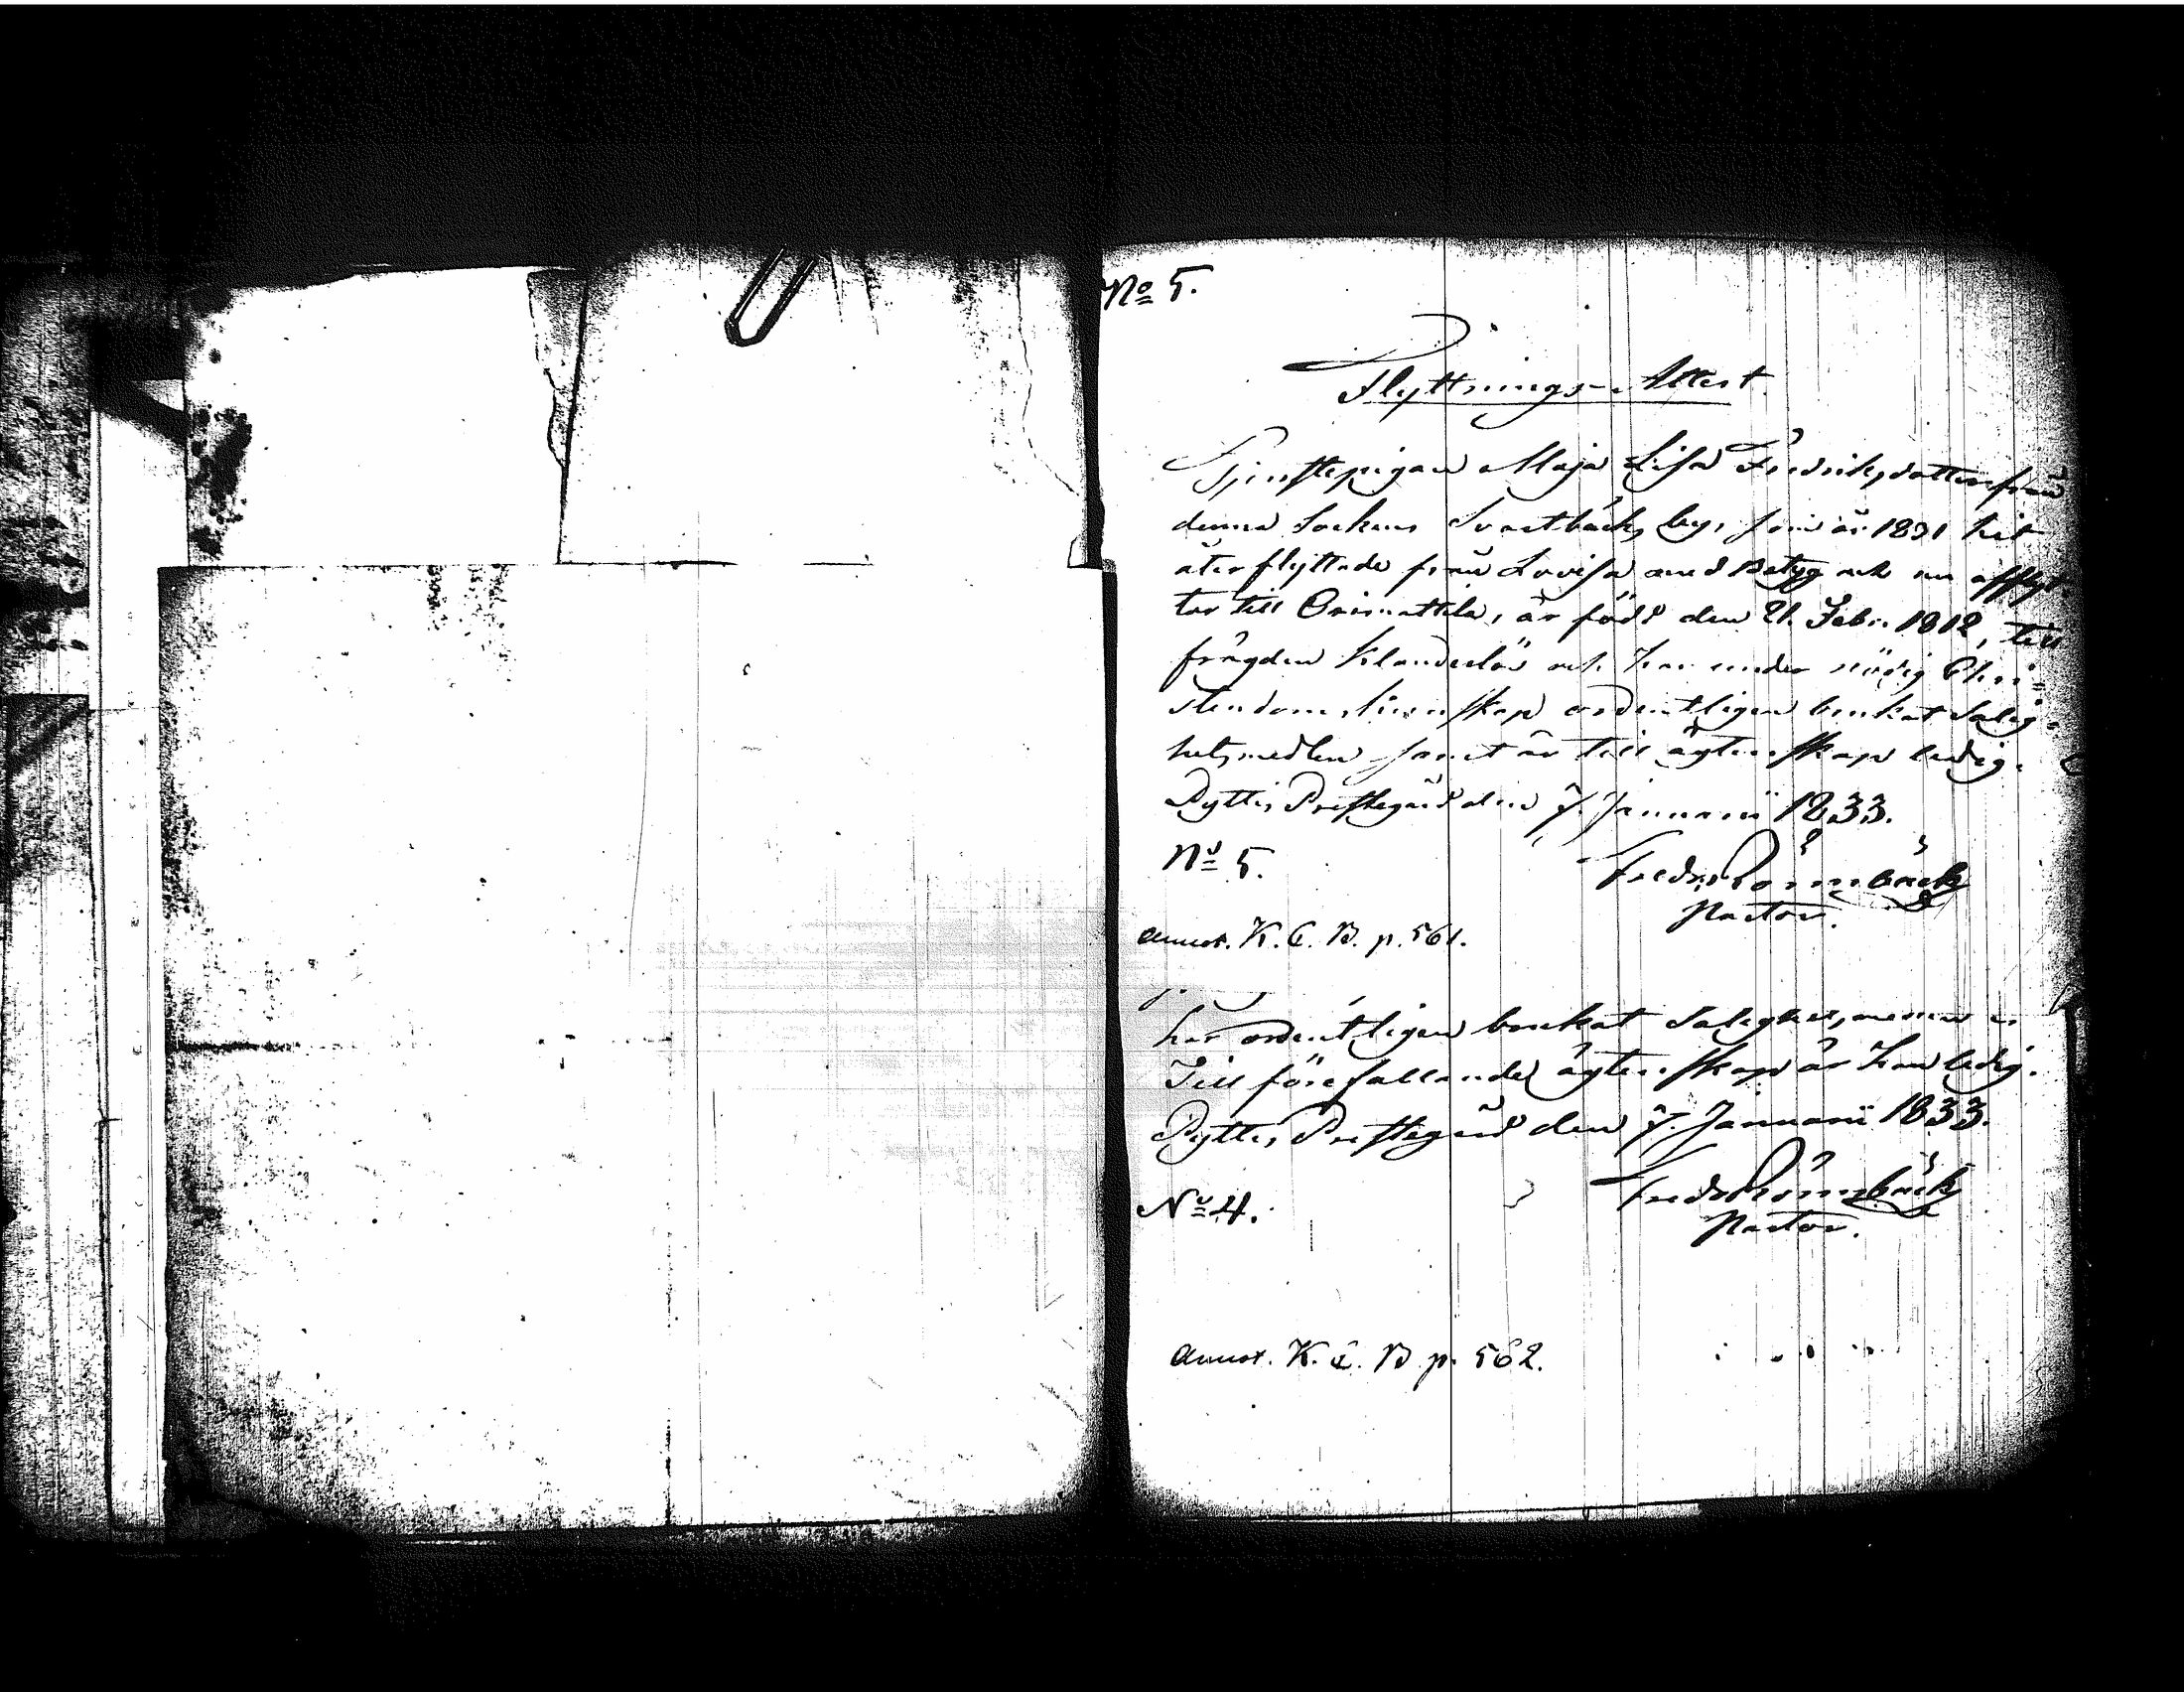 No 5.
Flyttnings-Attest.
Tjenstepigan Maja Lisa Fredriksdotter från
denna Sockens Svartbäcks by, som år 1831 hit
återflyttade från Lovisa med Betyg och nu afflyt-
tar till Orimattila, är född den 21. Febr. 1812, till
frägden klanderlös och har under nödig Chri=
stendomskunskap ordentligen brukat Salig=
hetsmedlen samt är till ägtenskap ledig.
Pyttis Prestegård den 7. Januarii 1833.
No 5.
Fredr. Rönnbäck
Pastor.
Annot. K. C. B. p. 561.
har ordentligen brukat Salighetsmedlen
Till förefallande ägtenskap är Han ledig.
Pyttis Prestegård den 7. Januarii 1833.
No 4.
Fredr. Rönnbäck
Pastor.
Annot. K. C. B p. 562.